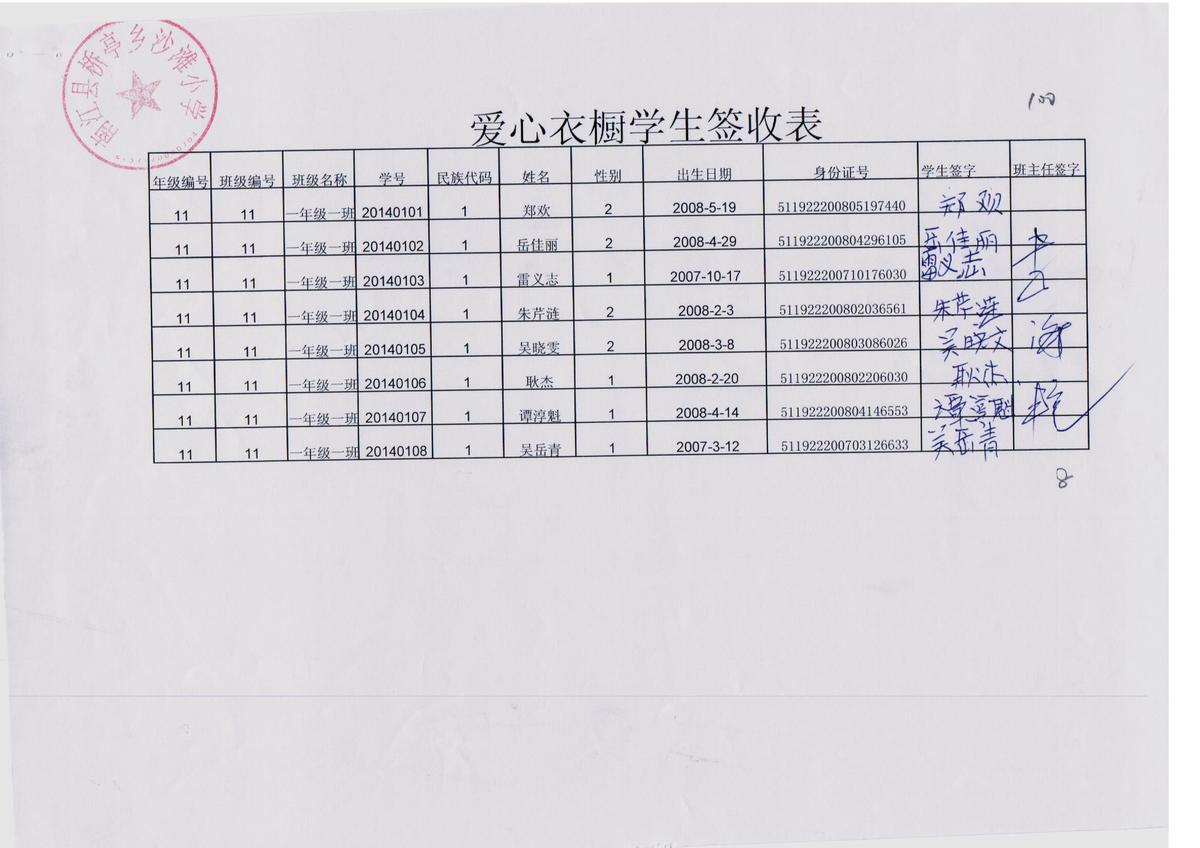 南江县桥亭乡沙滩小学
100
爱心衣橱学生签收表
年级编号 班级编号 班级名称 学号 民族代码 姓名 性别 出生日期 身份证号 学生签字 班主任签字
11 11 一年级一班 20140101 1 郑欢 2 2008-5-19 511922200805197440 郑欢
11 11 一年级一班 20140102 1 岳佳丽 2 2008-4-29 511922200804296105 岳佳丽
11 11 一年级一班 20140103 1 雷义志 1 2007-10-17 511922200710176030 雷义志
11 11 一年级一班 20140104 1 朱芹涟 2 2008-2-3 511922200802036561 朱芹涟
11 11 一年级一班 20140105 1 吴晓雯 2 2008-3-8 511922200803086026 吴晓文
11 11 一年级一班 20140106 1 耿杰 1 2008-2-20 511922200802206030 耿杰
11 11 一年级一班 20140107 1 谭淳魁 1 2008-4-14 511922200804146553
11 11 一年级一班 20140108 1 吴岳青 1 2007-3-12 511922200703126633 吴岳青
8